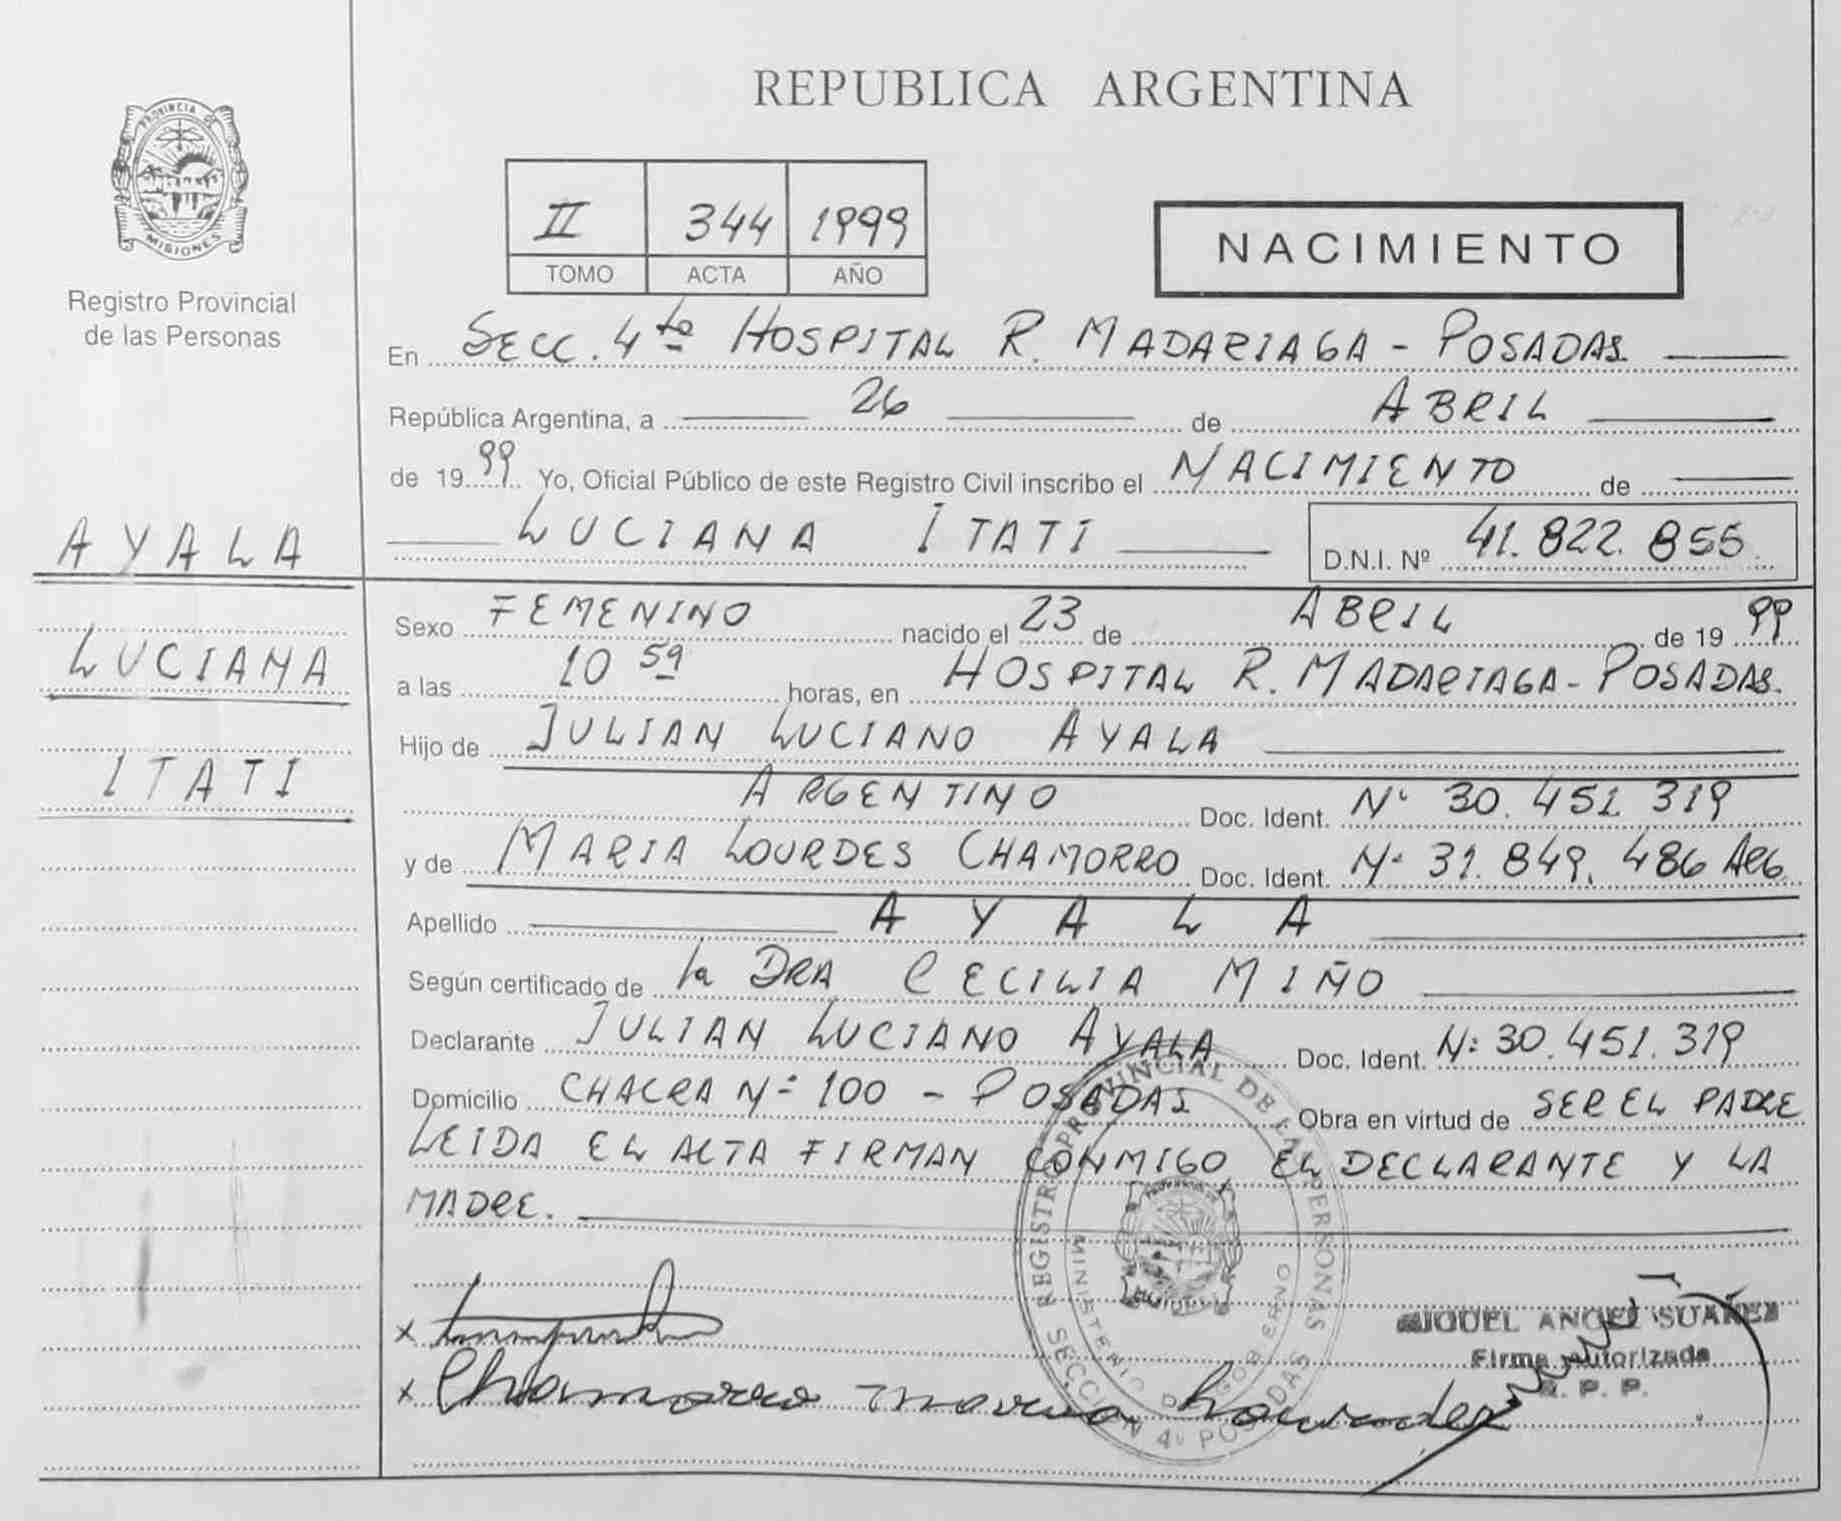 REPUBLICA ARGENTINA
PROVINCIA DE
MISIONES
Registro Provincial
de las Personas
II 344 1999
TOMO ACTA AÑO
NACIMIENTO
En SECC. 4to HOSPITAL R. MADARIAGA - POSADAS
República Argentina, a 26 de ABRIL
de 1999 Yo, Oficial Público de este Registro Civil inscribo el NACIMIENTO de
LUCIANA ITATI D.N.I. Nº 41.822.855
AYALA
LUCIANA
ITATI
Sexo FEMENINO nacido el 23 de ABRIL de 1999
a las 10 59 horas, en HOSPITAL R. MADARIAGA - POSADAS.
Hijo de JULIAN LUCIANO AYALA
ARGENTINO Doc. Ident. Nº 30.451.319
y de MARIA LOURDES CHAMORRO Doc. Ident. Nº 31.849.486 ARG
Apellido AYALA
Según certificado de la DRA CECILIA MIÑO
Declarante JULIAN LUCIANO AYALA Doc. Ident. Nº 30.451.319
Domicilio CHACRA Nº 100 - POSADAS Obra en virtud de SER EL PADRE
LEIDA EL ACTA FIRMAN CONMIGO EL DECLARANTE Y LA
MADRE.
REGISTRO PROVINCIAL DE LAS PERSONAS
MINISTERIO DE GOBIERNO
SECCION 4ª POSADAS
MIGUEL ANGEL SUAREZ
Firma Autorizada
R. P. P.
x
x Chamorro maria Lourdes